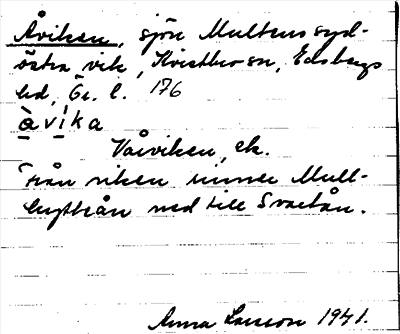 Åviken, sjön Multens syd-
östra vik, Kvistbro sn, Edsbergs
hd, Ör. l. 176
àvíka
Våviken, ek.
Från viken rinner Mull-
hyttån ned till Svartån.
Anna Larsson 1941.